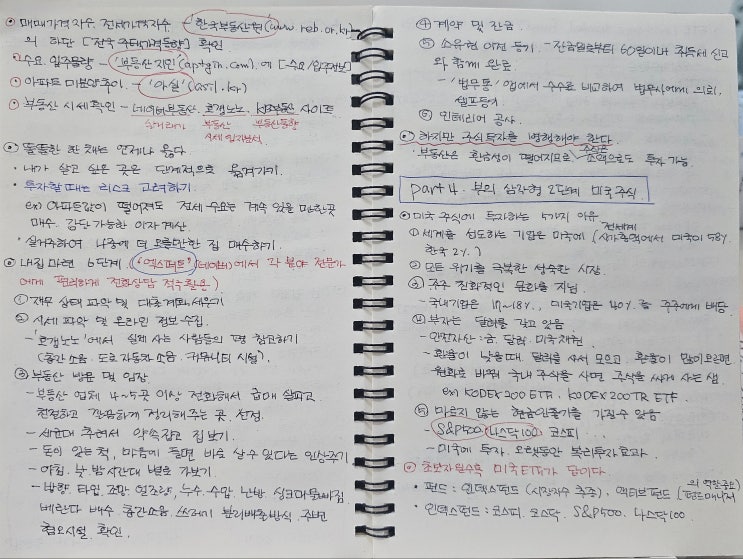 • 매매가격지수 전세가격지수 - 한국부동산원(www.reb.or.kr)
의 하단 [전국주택가격동향] 확인
• 수요. 입주물량 - '부동산지인'(aptgin.com)에 [수요/입주예보]
• 아파트 미분양추이 - '아실'(asil.kr)
• 부동산 시세확인 - 네이버부동산, 호갱노노, KB부동산 사이트
부동산 부동산통합
◎ 똘똘한 한 채는 언제나 옳다
• 내가 살고 싶은 곳은 단계적으로 옮겨가기.
• 투자할때는 리스크 고려하기
ex) 아파트값이 떨어져도 전세 수요는 계속 있을만한곳
매수. 감당 가능한 이자 계산
• 실거주하며 나중에 더 오를만한 집 매수하기.
◎ 내집마련 6단계. ('엑스퍼트'(네이버)에서 각 분야 전문가
에게 편리하게 전화상담 적극활용)
① 재무 상태 파악 및 대출계획세우기
② 시세 파악 및 온라인 정보수집.
- '호갱노노'에서 실제 사는 사람들의 평 참고하기
(층간소음. 도로 자동차소음. 커뮤니티 시설).
③ 부동산 방문 및 임장
- 부동산 업체 4~5곳 이상 전화해서 급매 살피고
친절하고 깔끔하게 정리해주는 곳 선정
- 세군데 추려서 약속잡고 집보기.
- 돈이 있는 척, 마음에 들면 바로 살수 있다는 인상주기
- 아침. 낮 밤 시간대 별로 가보기.
- 방향, 타입 조망 일조량, 누수. 수압. 난방 싱크대 물빠짐.
베란다 배수 층간소음. 쓰레기 분리배출방식. 주변
혐오시설 확인.
④ 계약 및 잔금
⑤ 소유권 이전 등기. - 잔금일로부터 60일이내 취득세 신고
와 함께 완료
- '법무통' 앱에서 수수료 비교하여 법무사에게 의뢰.
셀프등기
⑥ 인테리어 공사.
◎ 하지만 주식투자를 병행해야 한다.
• 부동산은 환금성이 떨어지므로 주식은 소액으로도 투자 가능.
part 4. 부의 삼각형 2단계 미국주식
◎ 미국 주식에 투자하는 5가지 이유
① 세계를 선도하는 기업은 미국에 (전세계 시가총액에서 미국이 58%
한국 2%.)
② 모든 위기를 극복한 성숙한 시장.
③ 주주 친화적인 문화를 지님.
- 국내기업은 17~18%, 미국기업은 40% 를 주주에게 배당
④ 부자는 달러를 갖고 있음
- 안전자산: 금. 달러. 미국채권
- 환율이 낮을때 달러를 사서 모으고, 환율이 많이오르면
원화로 바꿔 국내 주식을 사면 주식을 싸게 사는 셈.
ex) KODEX 200 ETF. KODEX 200TR ETF.
⑤ 마르지 않는 현금인출기를 가질수 있음
- S&P500 나스닥100 코스피...
- 미국에 투자. 오랫동안 복리투자효과.
◎ 초보자일수록 미국ETF가 답이다.
• 펀드: 인덱스펀드 (시장지수 추종). 액티브펀드 (펀드매니저의 역할중요)
• 인덱스펀드: 코스피. 코스닥. S&P500. 나스닥100.